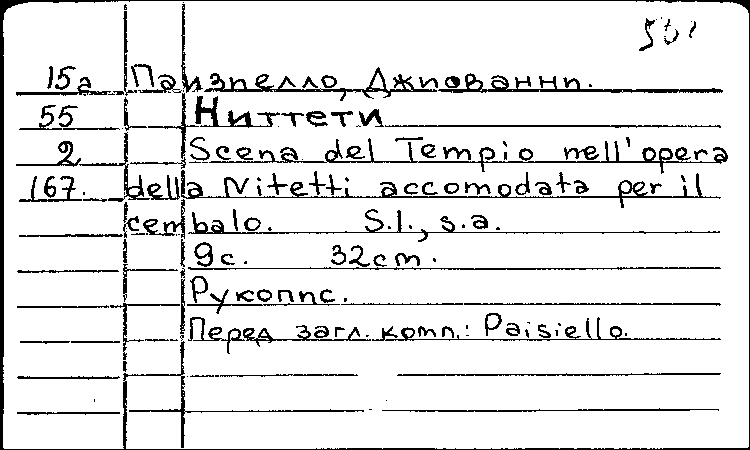 15а Паизиелло, Джиованни.
55 Ниттети
2 Scena del Tempio nell'opera
167. della Nitetti accomodata per il
cembalo. S.l., s.a.
9с. 32см.
Рукопис.
Перед загл. комп.: Paisiello.